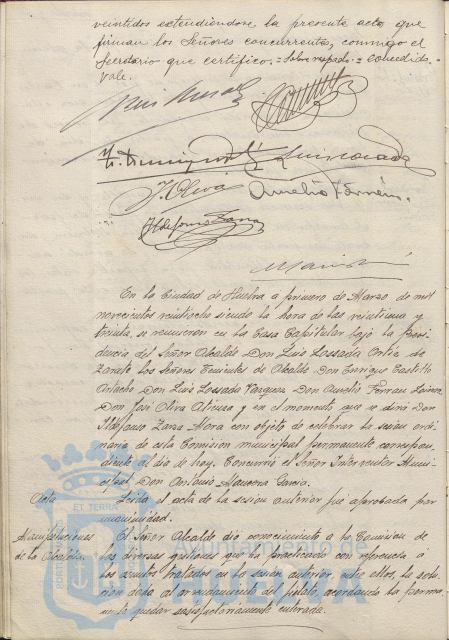 veintidos extendiendose la presente acta que
firman los Señores concurrentes, conmigo el
Secretario que certifico. = Sobre raspado = concedido. =
Vale.
J. Oliva
Aurelio
Ildefonso Zarza
En la Ciudad de Huelva a primero de Marzo de mil
novecientos veintiocho siendo la hora de las veintiuna y
treinta, se reunieron en la Casa Capitular bajo la Presi-
dencia del Señor Alcalde Don Luis
los Señores Tenientes de Alcalde Don Enrique Castillo
Don Luis Losada Vazquez Don Aurelio
Don José Oliva Atienza y en el momento que se dirá Don
Ildefonso Zarza Mora con objeto de celebrar la sesion ordi-
naria de esta Comision municipal permanente correspon-
diente al dia de hoy. Concurrió el Señor Interventor Muni-
cipal Don Antonio Garcia.
Acta Leida el acta de la sesion anterior fué aprobada por
unanimidad.
Manifestaciones El Señor Alcalde dió conocimiento a la Comision de
de la Alcaldia. las diversas gestiones que ha practicado con referencia a
los asuntos tratados en la sesion anterior, entre ellos, la solu-
cion dada al arrendamiento del acordando la Perma-
nente quedar satisfactoriamente enterada.
ET TERRA
Ayuntamiento de
HUELVA